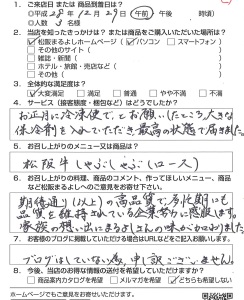 1. ご来店日 または 商品到着日は？
○平成 28年 12月 29日 午前 午後 時頃)
○人数 3名様
2. 当店を知ったきっかけは？ または商品をご購入いただいた場所は？
✓松阪まるよしホームページ（✓パソコン □スマートフォン）
□その他のサイト（
□雑誌・新聞（
□ホテル・旅館・売店など（
□その他（
3. 全体的な満足度は？
✓大変満足 □満足 □普通 □やや不満 □不満
4. サービス（接客態度・梱包など）はどうでしたか？
お正月に冷凍便で、とお願いしたところ、大きな
保冷剤を入れていただき最高の状態で届きました。
5. お召し上がりのメニュー又は商品は？
松阪牛しゃぶしゃぶ（ロース）
6. お召し上がりの料理、商品のコメント、作ってほしいメニュー、商品
など松阪まるよしへのご意見をお寄せ下さい。
期待通り（以上）の高品質で多忙期にも
品質を維持されている企業努力に感服します。
家族の笑い出にまるよしさんの味が加わりました
7. お客様のブログに掲載していただける場合はURLなどをご記入お願いします。
ブログはしていない為、申し訳ございません。
8. 今後、当店のお得な情報の送付を希望していただけますか？
□商品案内カタログを希望 □メルマガを希望 ✓どちらも希望しない
ホームページでもご意見をお寄せいただけます。